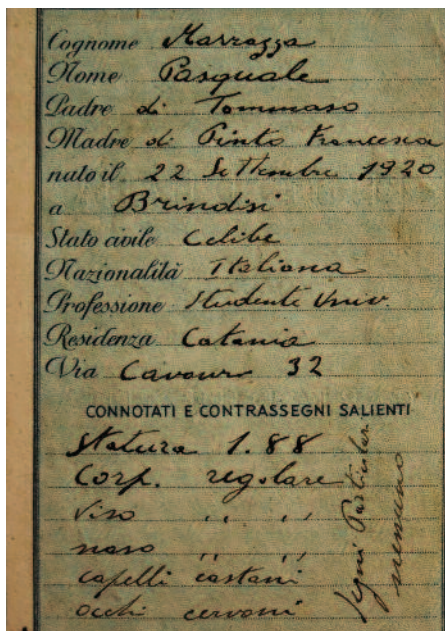 Cognome Marrazza
Nome Pasquale
Padre di Tommaso
Madre di Pinto Francesca
nato il 22 Settembre 1920
a Brindisi
Stato civile Celibe
Nazionalità Italiana
Professione Studente Univ.
Residenza Catania
Via Cavour 32
CONNOTATI E CONTRASSEGNI SALIENTI
Statura 1.88
Corp. regolare
viso " "
naso " "
capelli castani
occhi
Segni Particolari
nessuno